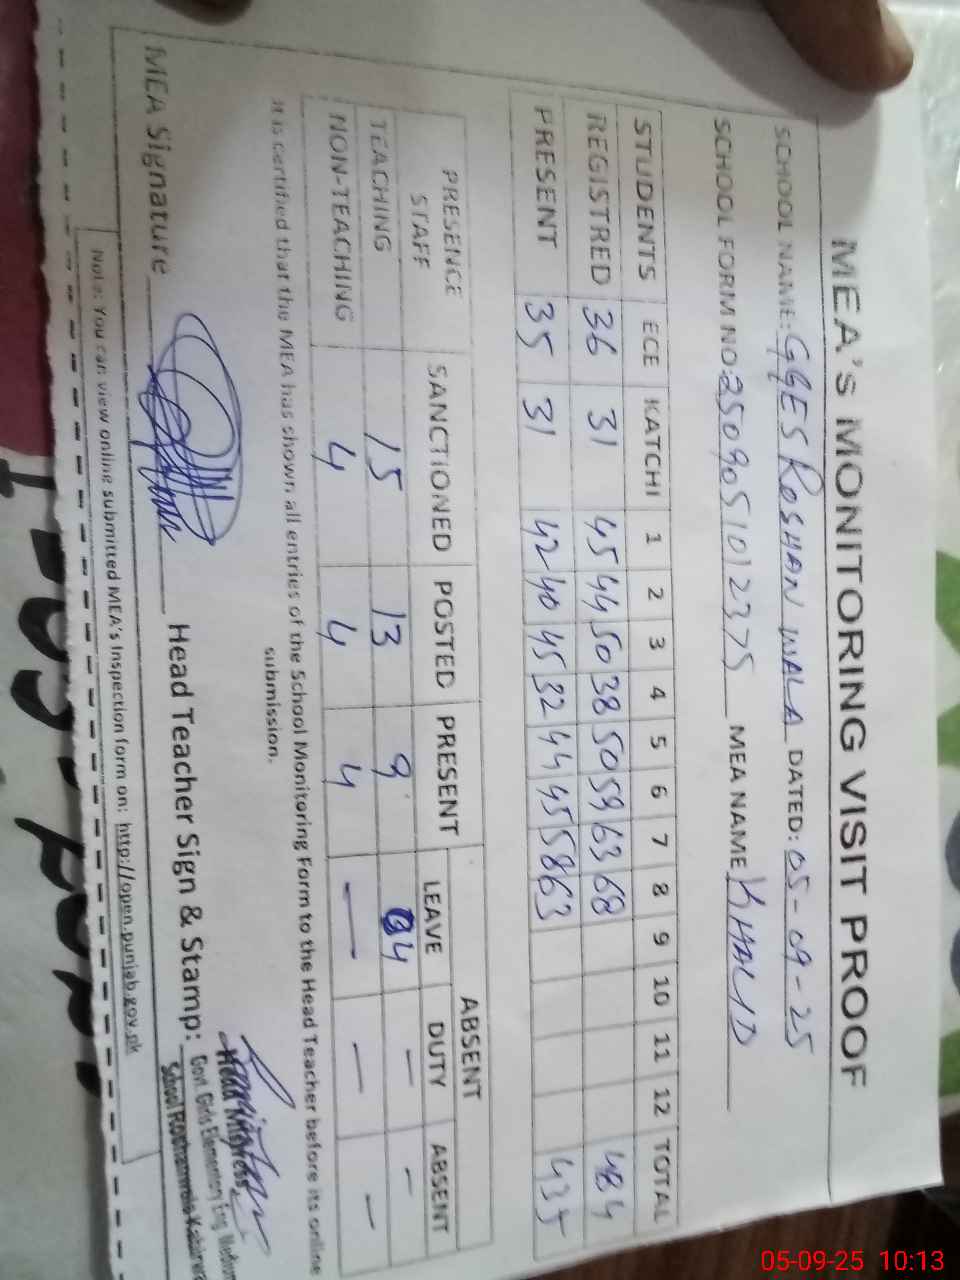 MEA's MONITORING VISIT PROOF
SCHOOL NAME: GGES ROSHAN WALA DATED: 05-09-25
SCHOOL FORM NO: 2509051012375 MEA NAME KHALID
STUDENTS ECE KATCHI 1 2 3 4 5 6 7 8 9 10 11 12 TOTAL
REGISTRED 36 31 45 44 50 38 50 59 63 68 484
PRESENT 35 31 42 40 45 32 44 45 58 63 435
PRESENCE STAFF SANCTIONED POSTED PRESENT ABSENT
LEAVE DUTY ABSENT
TEACHING 15 13 9 04 – –
NON-TEACHING 4 4 4 — — –
It is certified that the MEA has shown all entries of the School Monitoring Form to the Head Teacher before its online
submission.
MEA Signature Head Teacher Sign & Stamp:
Head Mistress
Govt. Girls Elementary
School
Note: You can view online submitted MEA's Inspection form on: http://open.punjab.gov.pk
05-09-25 10:13